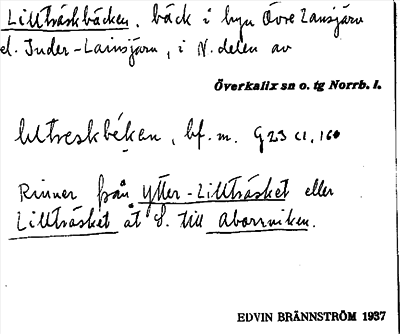 Lillträskbäcken, bäck i byn Övre Lansjärv
el. Inder-Lainsjärv, i N. delen av
Överkalix sn o. tg Norrb. l.
lıltreskbékan, bf. m. G 23 c1, 160
Rinner från Ytter-Lillträsket eller
Lillträsket åt S. till Aborrviken.
EDVIN BRÄNNSTRÖM 1937